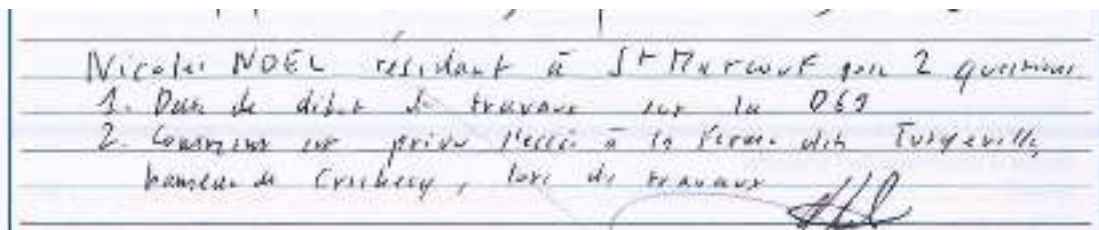 Nicolas NOEL résidant à St Marcouf pose 2 questions
1. Date de début de travaux sur la D69
2. Comment est prévu l'accès à la ferme dite Turqueville,
hameau de Crisbecq, lors de travaux